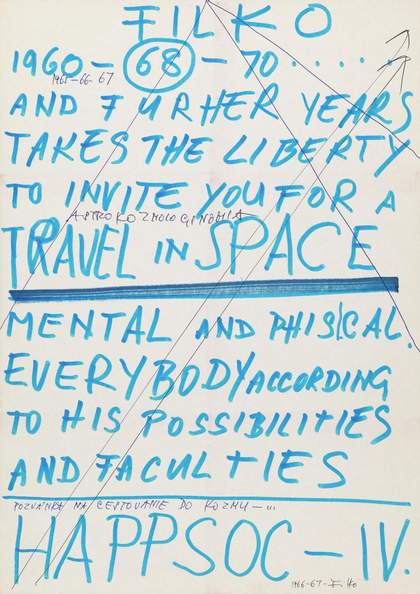 FILKO
1960 – 68 – 70 . . . . . .
1965-66-67
AND FURHER YEARS
TAKES THE LIBERTY
TO INVITE YOU FOR A
TRAVEL IN SPACE
MENTAL AND PHISICAL.
EVERYBODY ACCORDING
TO HIS POSSIBILITIES
AND FACULTIES
POZVÁNKA NA CESTOVANIE DO KOZMU – ...
HAPPSOC – IV.
1966-67- Filko